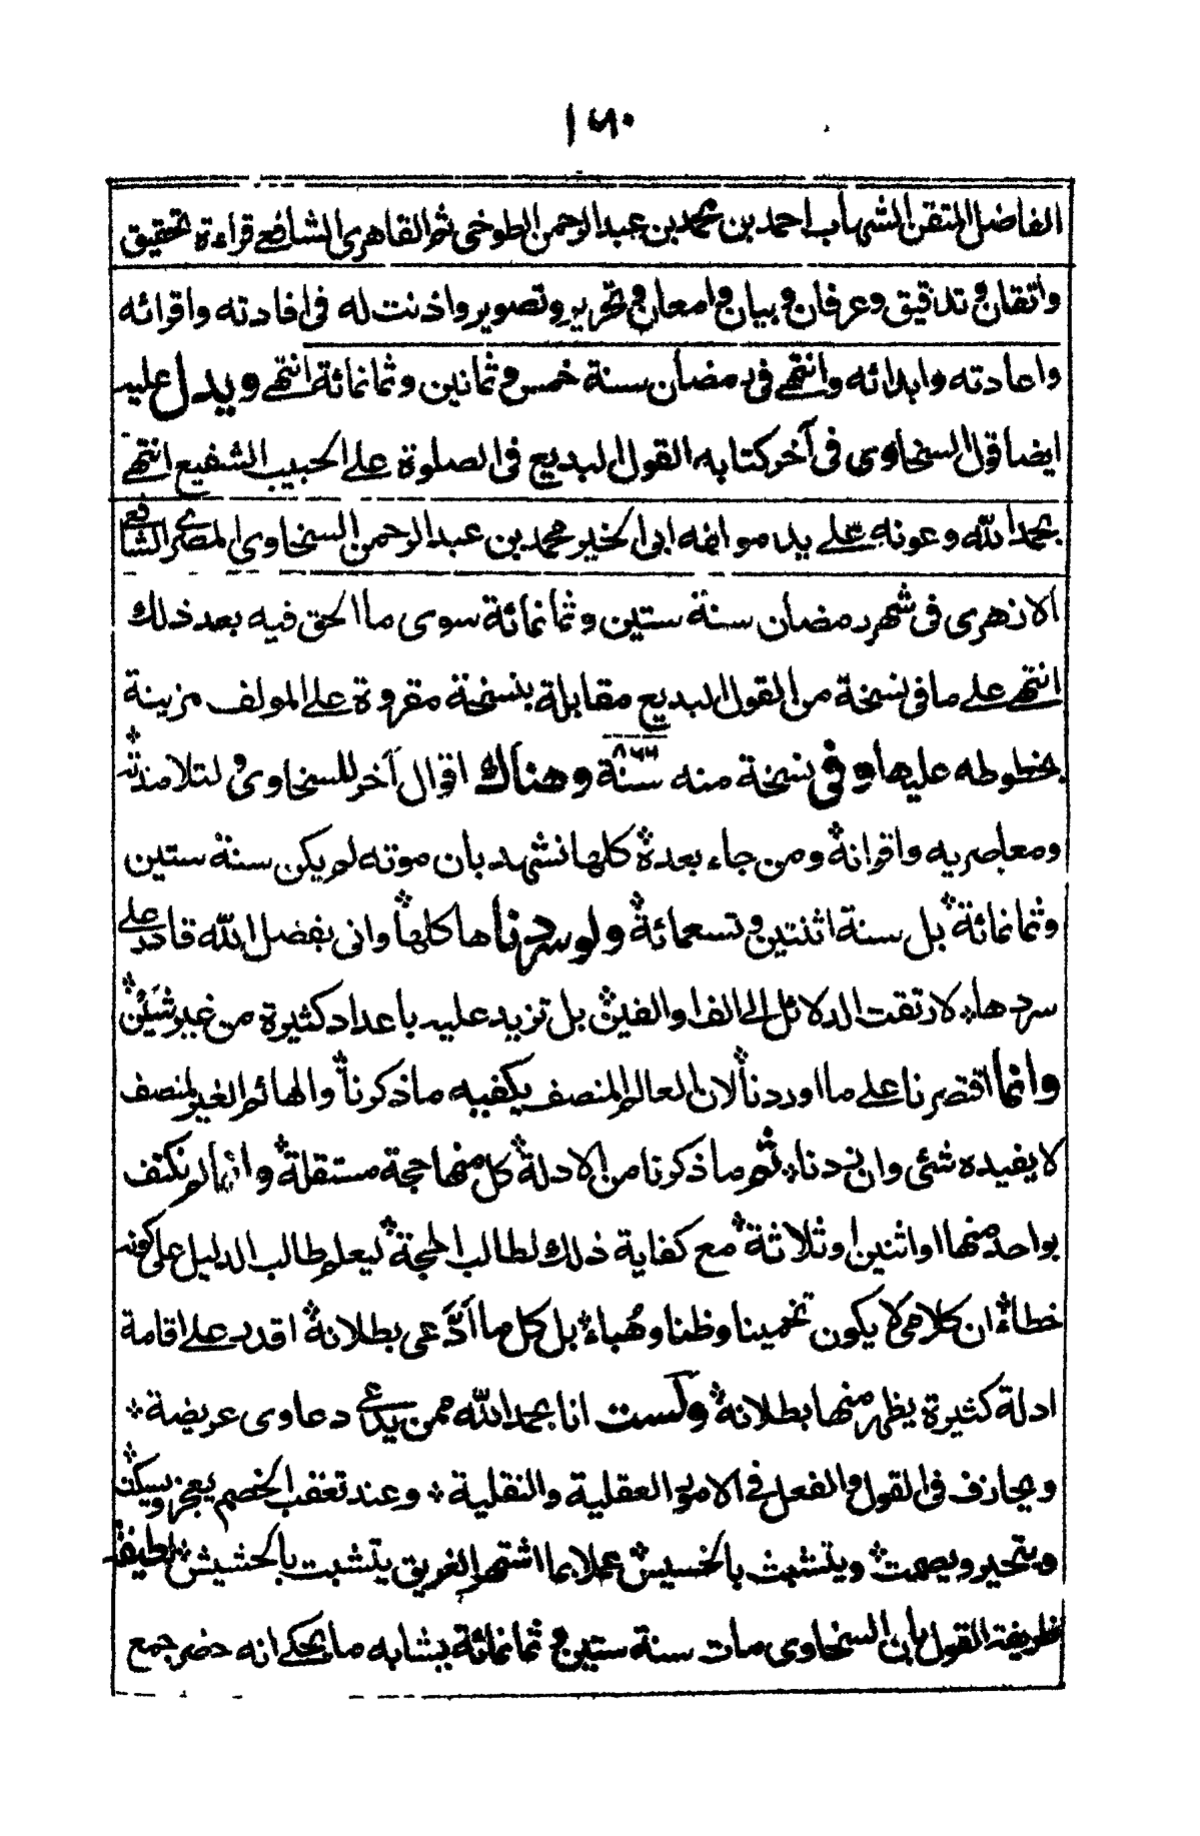 ١٦٠
الفاضل المتقن الشهاب احمد بن محمد بن عبد الرحمن الطوخي ثم القاهرى الشافعي قراءة تحقيق
واتقان وتدقيق وعرفان وبيان وامعان وتحرير وتصوير واذنت له فى افادته واقرائه
واعادته وابدائه وانتهى فى رمضان سنة خمس وثمانين وثمانمائة انتهى ويدل عليه
ايضا قول السخاوى فى آخر كتابه القول البديع فى الصلوة على الحبيب الشفيع انتهى
بحمد الله وعونه على يد مولفه ابى الخير محمد بن عبد الرحمن السخاوى المصرى الشافعي
الازهرى فى شهر رمضان سنة ستين وثمانمائة سوى ما الحق فيه بعد ذلك
انتهى على ما فى نسخة من القول البديع مقابلة بنسخة مقروة على المولف مزينة
بخطوطه عليها وفى نسخة منه سنة ٨٦٦ وهناك اقوال آخر للسخاوى ولتلامذته
ومعاصريه واقرانه ومن جاء بعده كلها نشهد بان موته لم يكن سنة ستين
وثمانمائة بل سنة اثنتين وتسعمائة ولو سردناها كلها وانى بفضل الله قادر على
سردها لارتقت الدلائل الى الف او الفين بل تزيد عليه باعداد كثيرة من غير شين
وانما اقتصرنا على ما اوردنا لان العالم المنصف يكفيه ما ذكرنا والهائم الغير المنصف
لا يفيده شئى وان زدنا ثم ما ذكرنا من الادلة كل منها حجة مستقلة وانما لم نكتف
بواحد منها او اثنين او ثلاثة مع كفاية ذلك لطالب الحجة ليعلم طالب الدليل على كونه
خطاء ان كلامى لا يكون تخمينا وظنا وهُباء بل كل ما اَدَّعى بطلانه اقدر على اقامة
ادلة كثيرة يظهر منها بطلانه ولست انا بحمد الله ممن يدعى دعاوى عريضة
ويجازف فى القول والفعل فى الامور العقلية والنقلية وعند تعقب الخصم يعجز ويسكت
ويتحير ويصمت ويتشبث بالخسيس عملا بما اشتهر الغريق يتشبت بالحشيش لطيفة
ظريفة القول بان السخاوى مات سنة ستين وثمانمائة يشابه ما يحكى انه حضر جمع